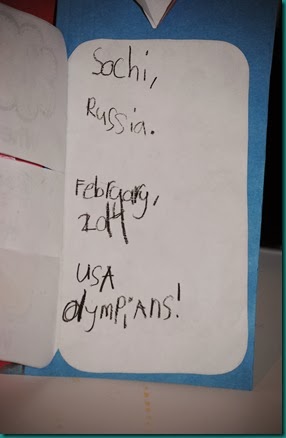 Sochi,
Russia.
February,
2014
USA
Olympians!